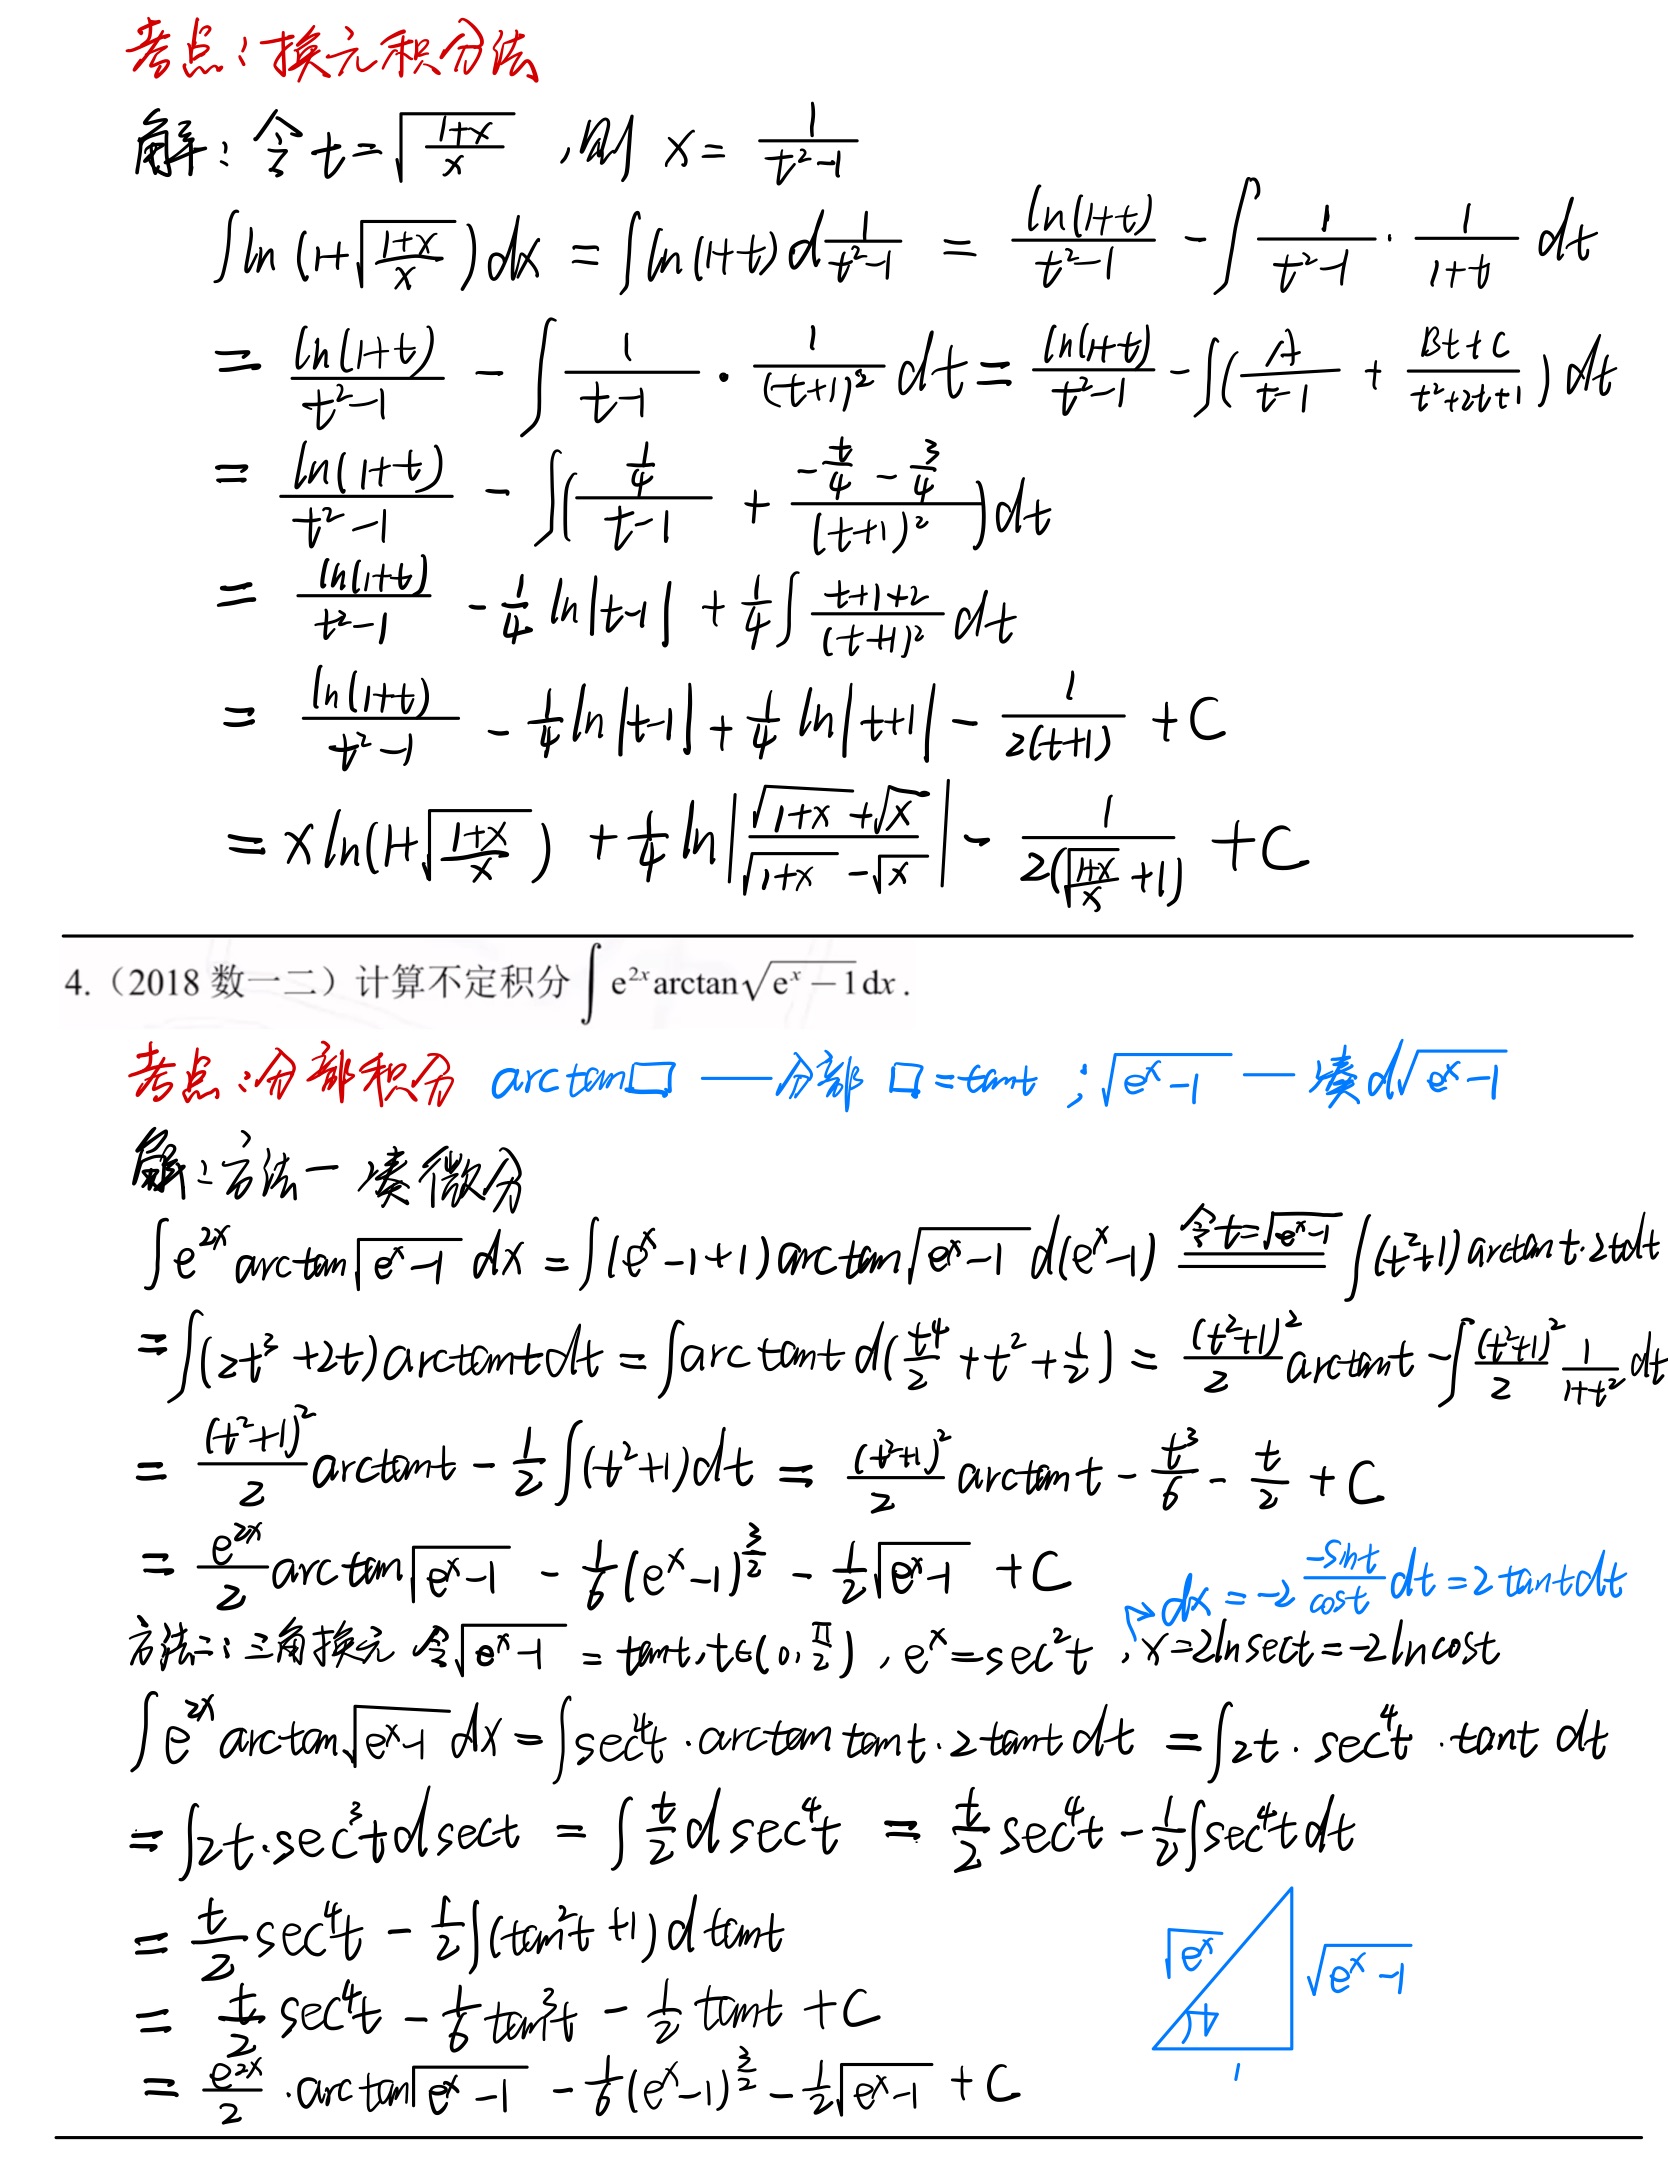 考点：换元积分法
解：令 t=√((1+x)/x) ，则 x= 1/(t²-1)
∫ln(1+√((1+x)/x))dx = ∫ln(1+t)d 1/(t²-1) = ln(1+t)/(t²-1) - ∫ 1/(t²-1) · 1/(1+t) dt
= ln(1+t)/(t²-1) - ∫ 1/(t-1) · 1/(t+1)² dt = ln(1+t)/(t²-1) - ∫( A/(t-1) + (Bt+C)/(t²+2t+1) ) dt
= ln(1+t)/(t²-1) - ∫( (1/4)/(t-1) + (-t/4 - 3/4)/(t+1)² )dt
= ln(1+t)/(t²-1) - 1/4 ln|t-1| + 1/4 ∫ (t+1+2)/(t+1)² dt
= ln(1+t)/(t²-1) - 1/4 ln|t-1| + 1/4 ln|t+1| - 1/(2(t+1)) + C
= x ln(1+√((1+x)/x)) + 1/4 ln|(√(1+x)+√x)/(√(1+x)-√x)| - 1/(2(√((1+x)/x)+1)) + C
4.（2018 数一二）计算不定积分∫e^(2x) arctan√(e^x-1) dx.
考点：分部积分 arctan□ —分部 □=tant ；√(e^x-1) — 凑d√(e^x-1)
解：方法一 凑微分
∫e^(2x) arctan√(e^x-1) dx = ∫(e^x-1+1)arctan√(e^x-1) d(e^x-1) 令t=√(e^x-1) ∫(t²+1)arctant·2tdt
= ∫(2t³+2t)arctantdt = ∫arctant d(t⁴/2+t²+1/2) = (t²+1)²/2 arctant - ∫ (t²+1)²/2 1/(1+t²) dt
= (t²+1)²/2 arctant - 1/2 ∫(t²+1)dt = (t²+1)²/2 arctant - t³/6 - t/2 + C
= e^(2x)/2 arctan√(e^x-1) - 1/6 (e^x-1)^(3/2) - 1/2 √(e^x-1) + C
→dx = -2 (-sint)/cost dt = 2tantdt
方法二：三角换元 令√(e^x-1) = tant, t∈(0, π/2) , e^x=sec²t , x=2lnsect=-2lncost
∫e^(2x) arctan√(e^x-1) dx = ∫sec⁴t · arctan tant · 2tant dt = ∫2t · sec⁴t · tant dt
= ∫2t·sec³t dsect = ∫ t/2 dsec⁴t = t/2 sec⁴t - 1/2∫sec⁴tdt
= t/2 sec⁴t - 1/2∫(tan²t+1)dtant
= t/2 sec⁴t - 1/6 tan³t - 1/2 tant + C
= e^(2x)/2 ·arctan√(e^x-1) - 1/6 (e^x-1)^(3/2) - 1/2 √(e^x-1) + C
√(e^x)
√(e^x-1)
t
1